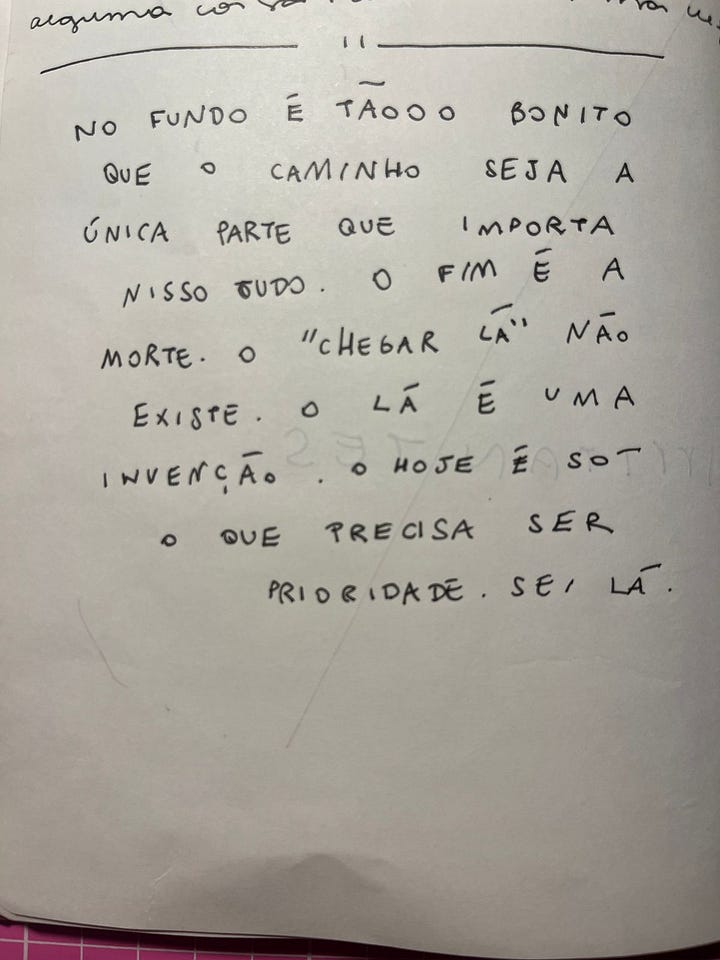 alguma
11
NO FUNDO É TÃOOO BONITO
QUE O CAMINHO SEJA A
ÚNICA PARTE QUE IMPORTA
NISSO TUDO. O FIM É A
MORTE. O "CHEGAR LÁ" NÃO
EXISTE. O LÁ É UMA
INVENÇÃO. O HOJE É SÓ
O QUE PRECISA SER
PRIORIDADE. SEI LÁ.